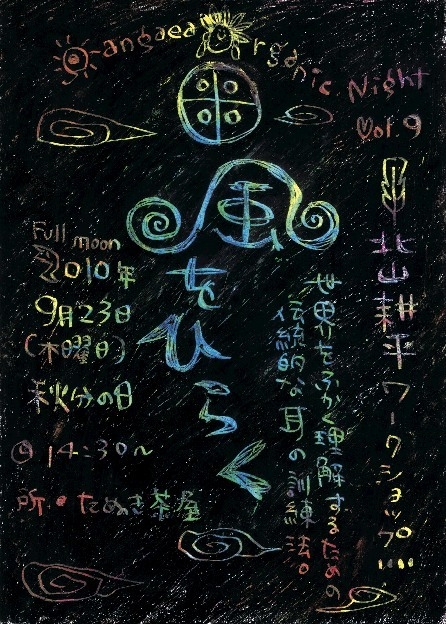 Gangaea Organic Night
Vol.9
北山耕平 ワークショップ…
風をひらく
世界をふかく理解するための
伝統的な耳の訓練法。
Full moon
2010年
9月23日
(木曜日)
秋分の日
14:30〜
所・たぬき茶屋